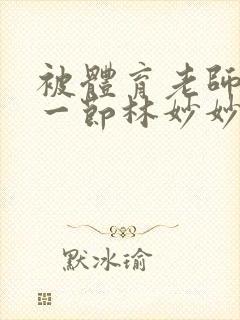 被體育老師
一節林妙妙
默冰瑜